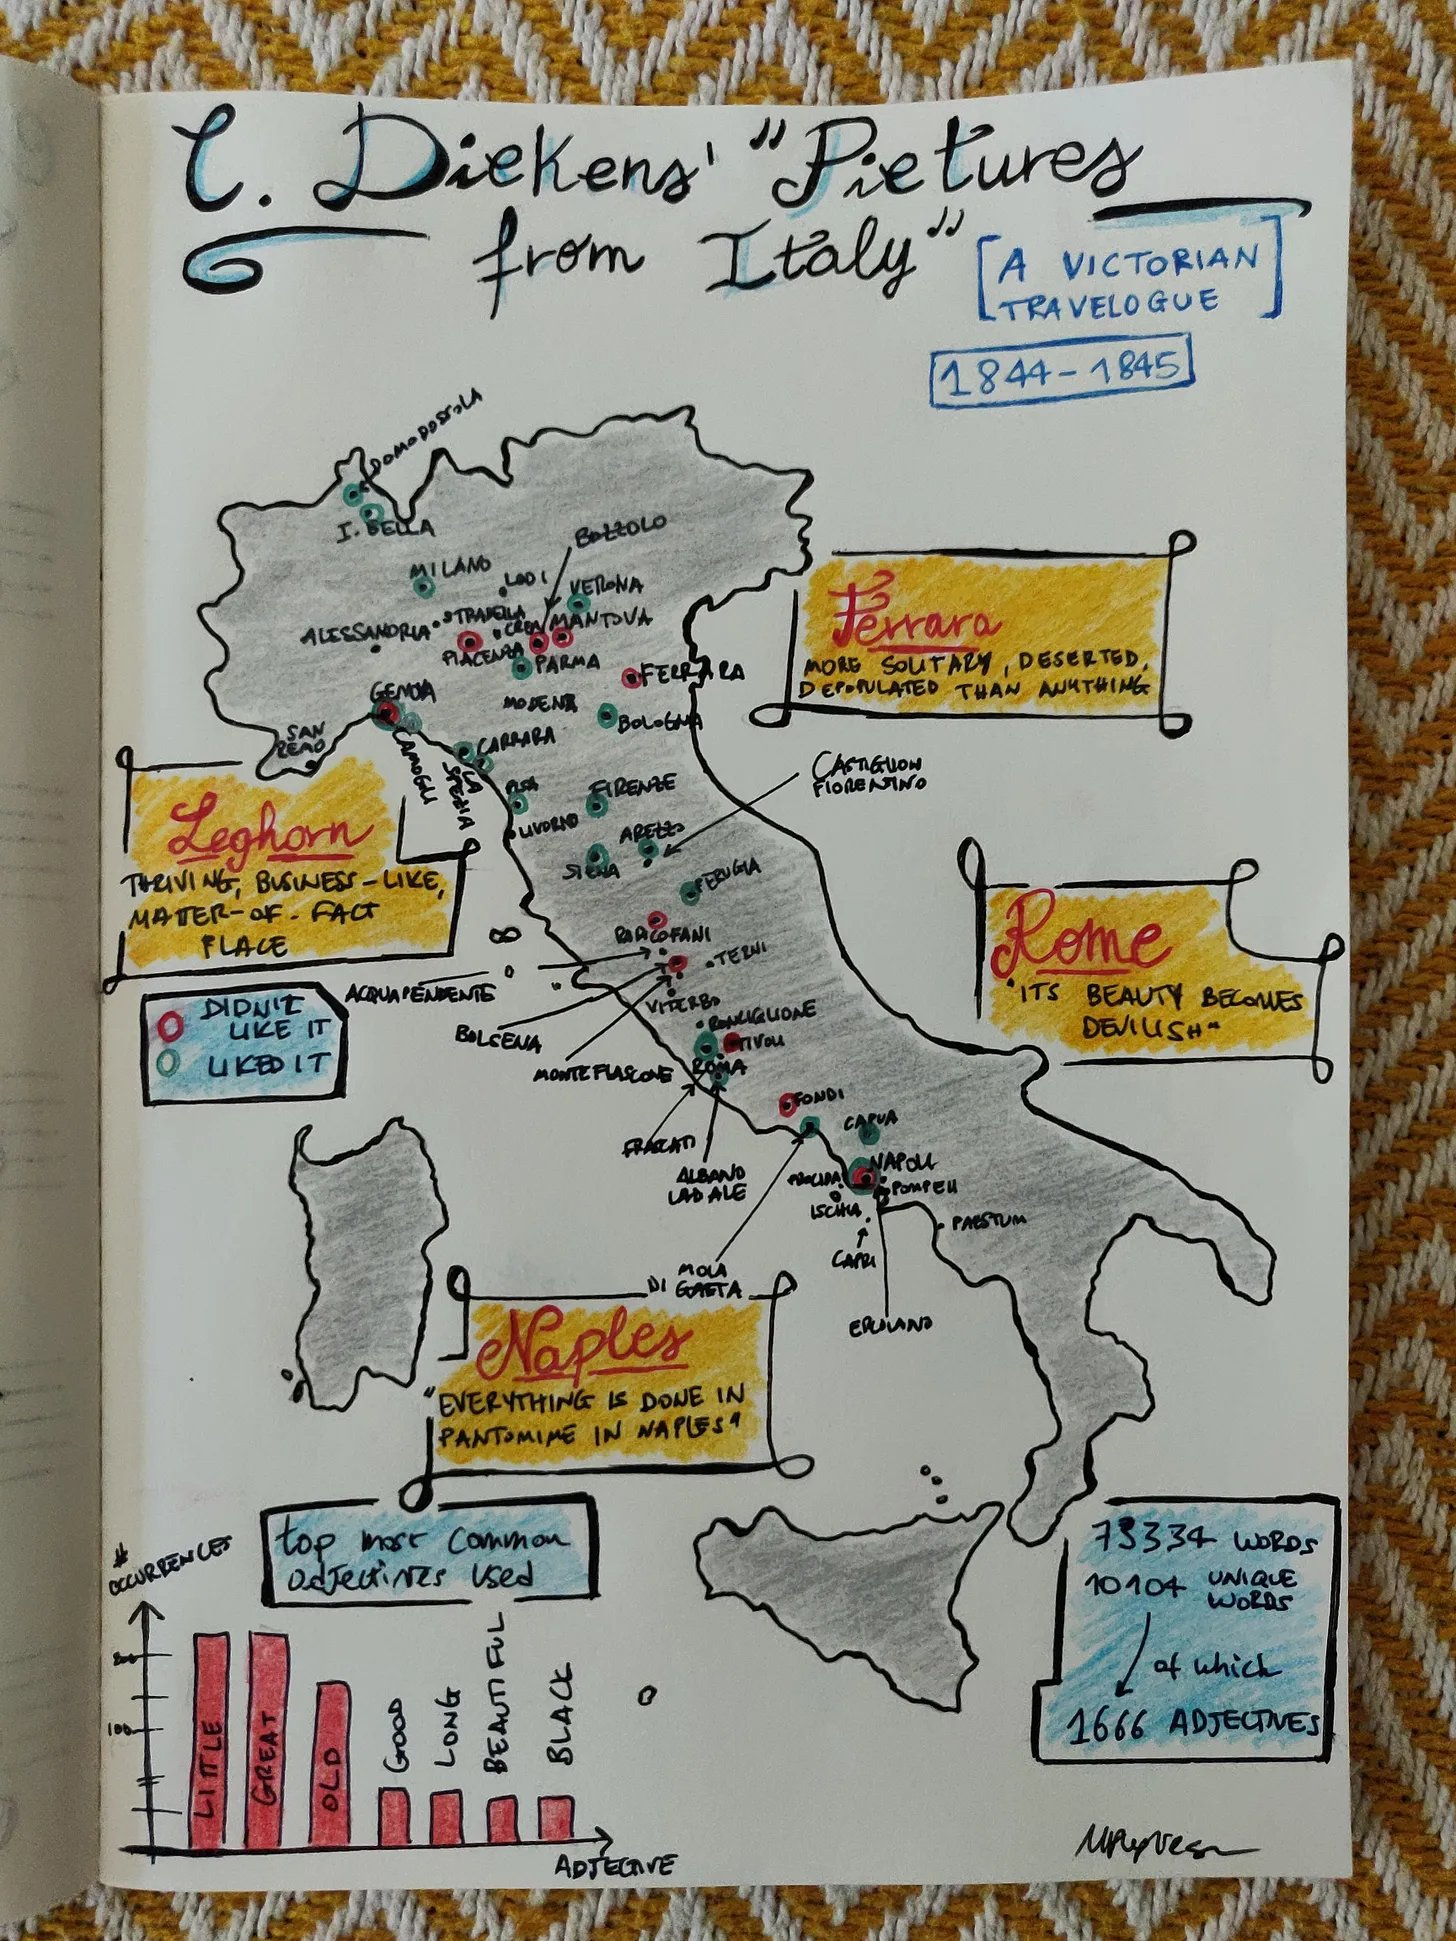 C. Dickens' "Pictures
from Italy"
[A VICTORIAN
TRAVELOGUE]
1844-1845
DOMODOSSOLA
I. BELLA
MILANO
LODI
BOZZOLO
VERONA
STRADELLA
CREMONA
MANTOVA
ALESSANDRIA
PIACENZA
PARMA
FERRARA
MODENA
BOLOGNA
GENOA
CAMOGLI
SAN
REMO
CARRARA
LA
SPEZIA
PISA
FIRENZE
LIVORNO
AREZZO
CASTIGLION
FIORENTINO
SIENA
PERUGIA
RADICOFANI
TERNI
ACQUAPENDENTE
VITERBO
BOLSENA
RONCIGLIONE
MONTEFIASCONE
TIVOLI
ROMA
FRASCATI
ALBANO
LAZIALE
FONDI
CAPUA
NAPOLI
PROCIDA
POMPEII
ISCHIA
CAPRI
PAESTUM
MOLA
DI GAETA
ERCOLANO
Ferrara
MORE SOLITARY, DESERTED,
DEPOPULATED THAN ANYTHING
Leghorn
THRIVING, BUSINESS-LIKE,
MATTER-OF-FACT
PLACE
Rome
"ITS BEAUTY BECOMES
DEVILISH"
DIDN'T
LIKE IT
LIKED IT
Naples
"EVERYTHING IS DONE IN
PANTOMIME IN NAPLES"
top most common
adjectives used
#
OCCURRENCES
200
100
LITTLE
GREAT
OLD
GOOD
LONG
BEAUTIFUL
BLACK
ADJECTIVE
73334 WORDS
10104 UNIQUE
WORDS
of which
1666 ADJECTIVES